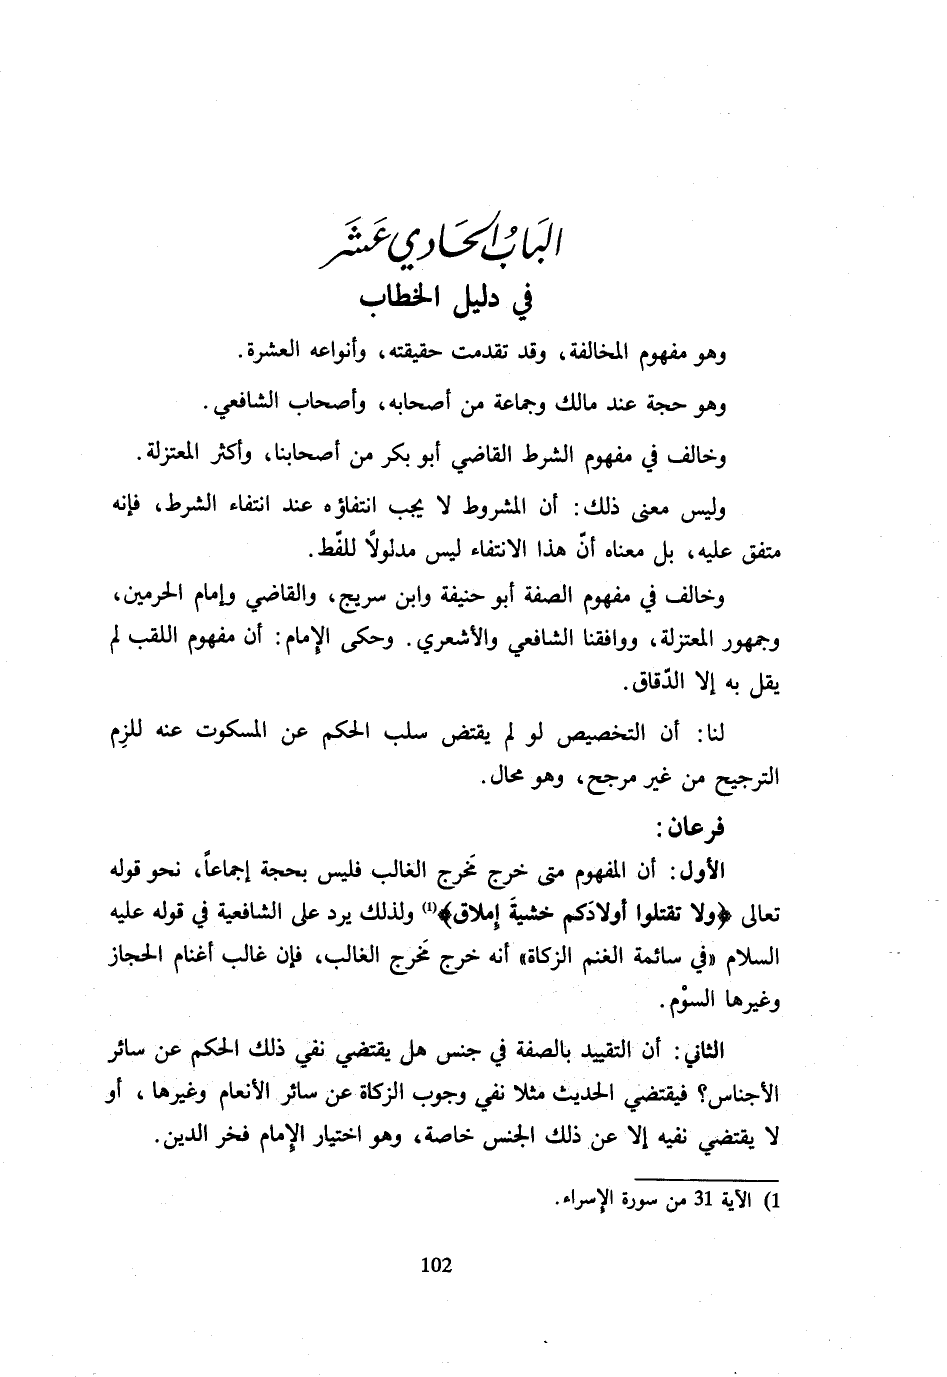 البَابُ الحَادِي عَشَرَ
في دليل الخطاب
وهو مفهوم المخالفة، وقد تقدمت حقيقته، وأنواعه العشرة.
وهو حجة عند مالك وجماعة من أصحابه، وأصحاب الشافعي.
وخالف في مفهوم الشرط القاضي أبو بكر من أصحابنا، وأكثر المعتزلة.
وليس معنى ذلك: أن المشروط لا يجب انتفاؤه عند انتفاء الشرط، فإنه
متفق عليه، بل معناه أنّ هذا الانتفاء ليس مدلولاً للفّط.
وخالف في مفهوم الصفة أبو حنيفة وابن سريج، والقاضي وإمام الحرمين،
وجمهور المعتزلة، ووافقنا الشافعي والأشعري. وحكى الإمام: أن مفهوم اللقب لم
يقل به إلا الدّقاق.
لنا: أن التخصيص لو لم يقتض سلب الحكم عن المسكوت عنه للزِم
الترجيح من غير مرجح، وهو محال.
فرعان:
الأول: أن المفهوم متى خرج مَخرج الغالب فليس بحجة إجماعاً، نحو قوله
تعالى ﴿ولا تقتلوا أولادَكم خشيةَ إملاق﴾(1) ولذلك يرد على الشافعية في قوله عليه
السلام «في سائمة الغنم الزكاة» أنه خرج مَخرج الغالب، فإن غالب أغنام الحجاز
وغيرها السوْم.
الثاني: أن التقييد بالصفة في جنس هل يقتضي نفي ذلك الحكم عن سائر
الأجناس؟ فيقتضي الحديث مثلا نفي وجوب الزكاة عن سائر الأنعام وغيرها، أو
لا يقتضي نفيه إلا عن ذلك الجنس خاصة، وهو اختيار الإمام فخر الدين.
1) الآية 31 من سورة الإسراء.
102